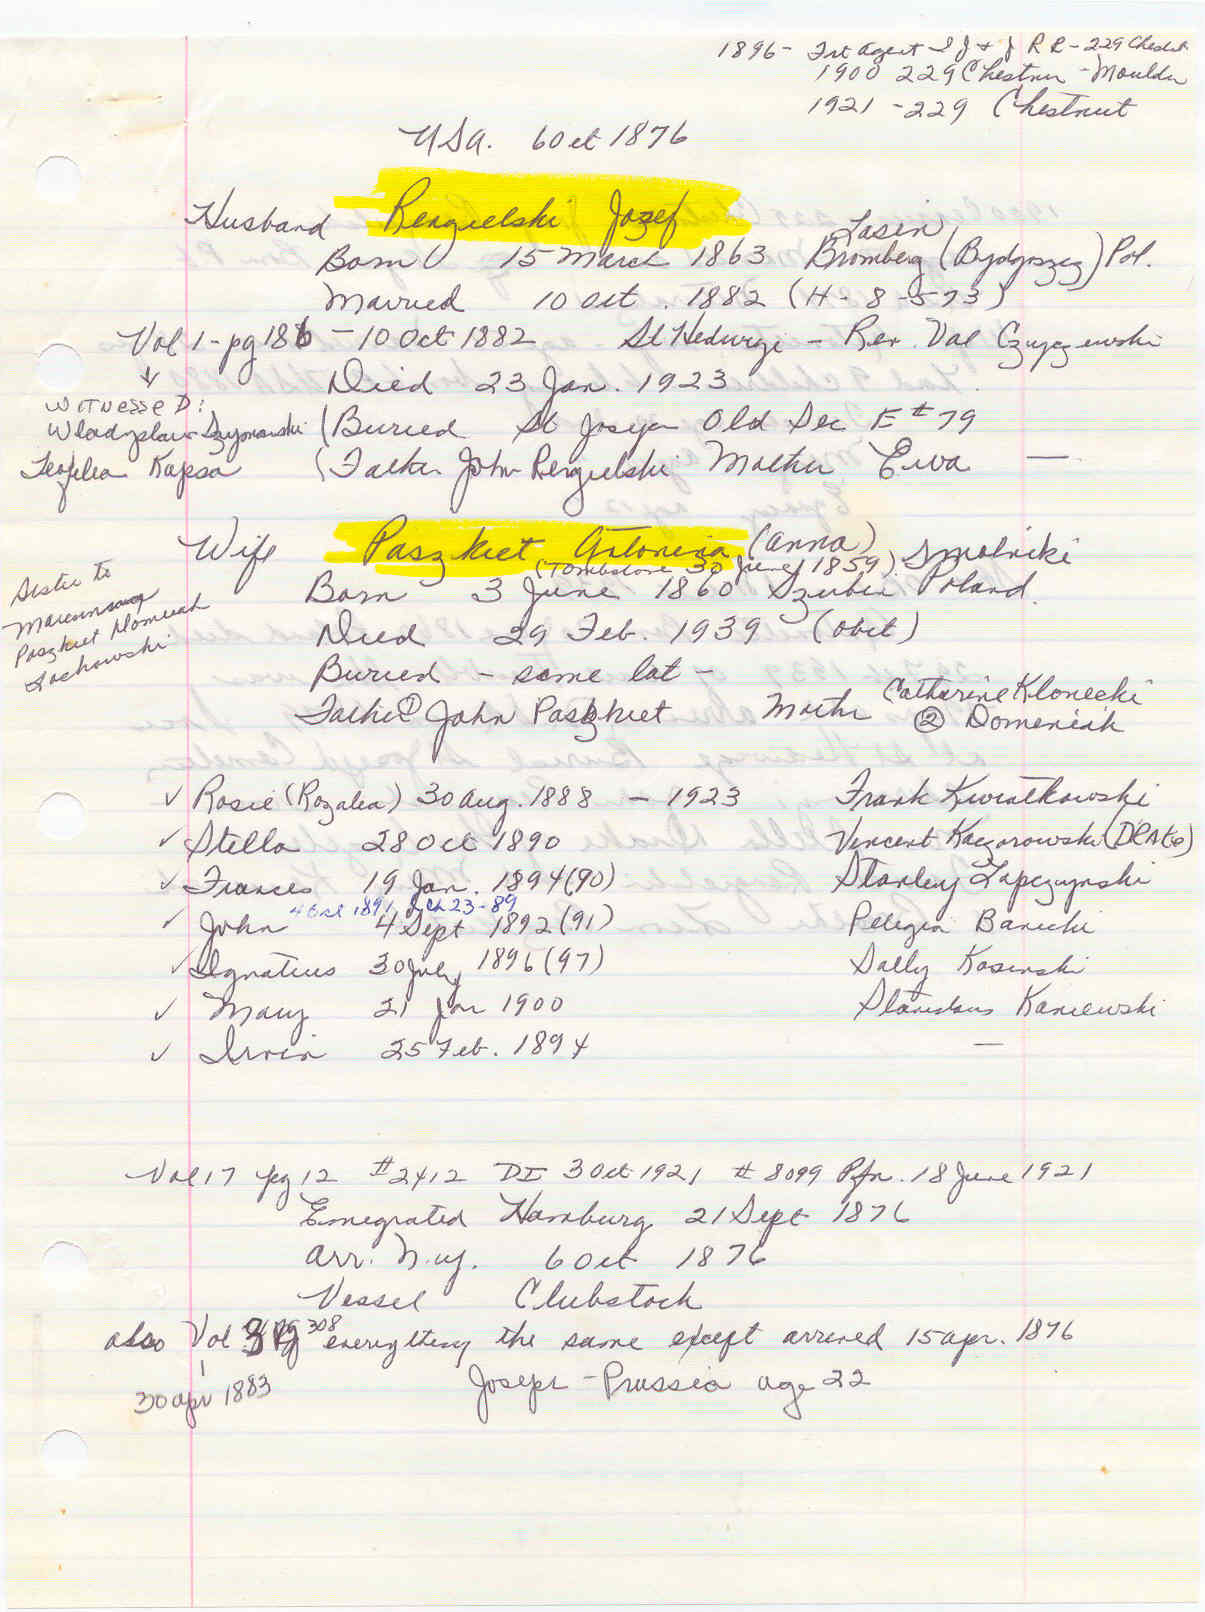 1896 - Frt Agent I J & J RR - 229 Chestnut
1900 229 Chestnu - Moulder
1921 - 229 Chestnut
USA. 6 Oct 1876
Husband Rengielski Jozef
Lasin
Born 15 March 1863 Bromberg (Bydgoszcz) Pol.
Married 10 Oct. 1882 (H-8-573)
Vol 1 - pg 186 - 10 Oct 1882 St Hedwige - Rev. Val Czyzewski
Died 23 Jan. 1923
WITNESSED:
Wladyslaw Szymanski (Buried St Joseph Old Sec E # 79
Teofilea Kapsa (Father John Rengielski Mother Ewa —
Wife Paszkiet Antonina (Anna) Smolniki
(Tombstone 30 June 1859)
Born 3 June 1860 Szubin Poland.
Sister to
Paszkiet Domeniak
Lochowski
Died 29 Feb. 1939 (obit)
Buried - same lot -
Catharine Klonecki
Father ① John Paszkiet Mother ② Domeniak
✓ Rosie (Rozalea) 30 Aug. 1888 - 1923 Frank Kwiatkowski
✓ Stella 28 Oct 1890 Vincent Kaczorowski (DRAKE)
✓ Frances 19 Jan. 1894 (90) Stanley Lapczynski
4 Oct 1891 ch 23-89
✓ John 4 Sept 1892 (91) Pelegia Banicki
✓ Ignatius 30 July 1896 (97) Sally Kosinski
✓ Mary 21 Jan 1900 Stanislaus Kaniewski
✓ Irvin 25 Feb. 1894 —
Vol 17 pg 12 # 2412 DI 3 Oct 1921 # 8099 Ptn. 18 June 1921
Emegrated Hamburg 21 Sept 1876
Arr. N.Y. 6 Oct 1876
Vessel Clubstock
also Vol Pg 308 everything the same except arrived 15 Apr. 1876
30 Apr 1883 Joseph - Prussia age 22